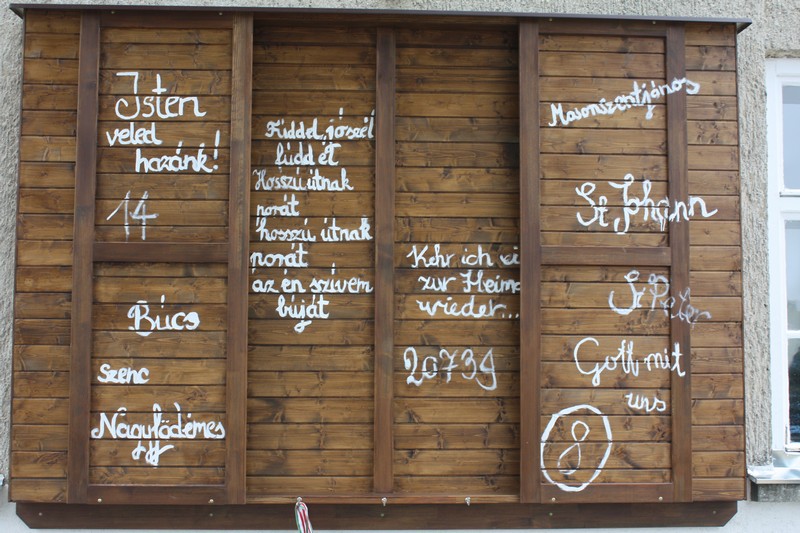 Isten
veled
hazánk!
14
Búcs
Szenc
Nagyfödémes
Fúddel, jó szél
fúdd ét
Hosszú útnak
porát
hosszú útnak
porát
az én szívem
búját
Kehr ich ei
zur Heima
wieder...
20739
Mosonszentjános
St Johann
St Peter
Gott mit
uns
8